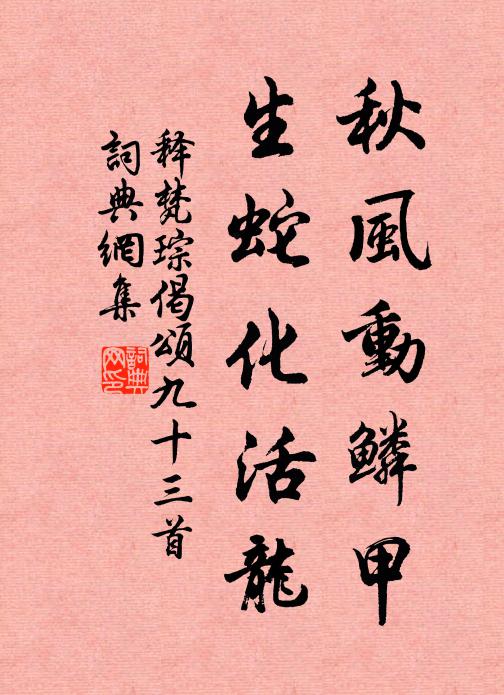 秋風動鱗甲
生蛇化活龍
释梵琮偈頌九十三首
詞典網集
詞典網印